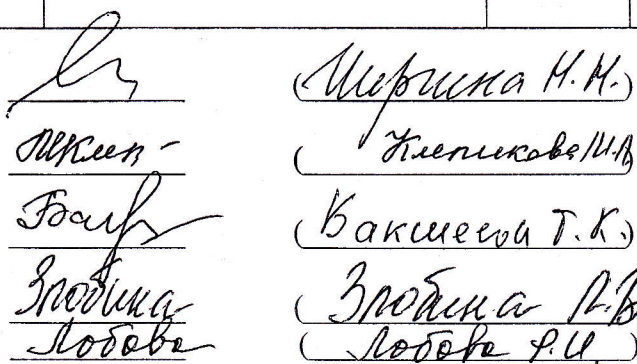 (Ширина Н.Н.)
(Клепикова И.В
(Бакшеева Т.К.)
Злобина (Злобина Л.В
Лобова (Лобова Р.И